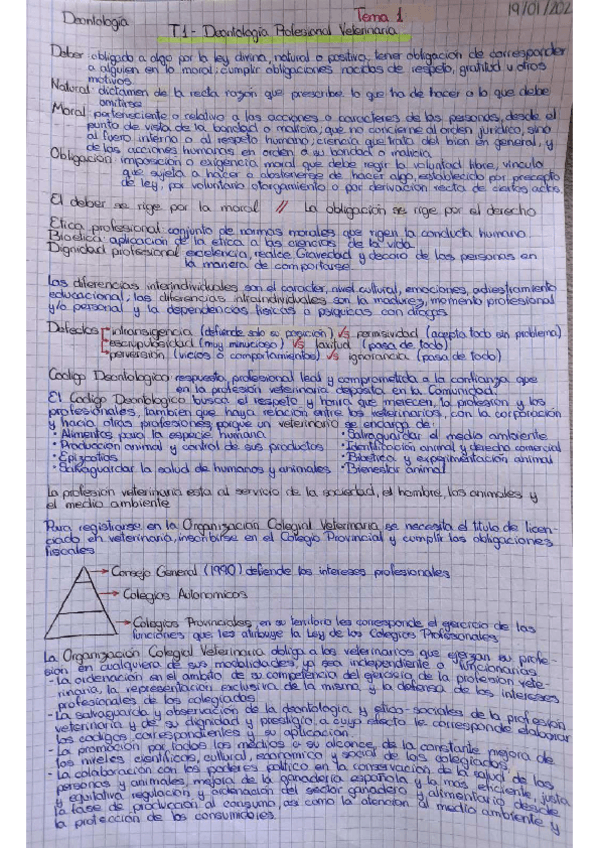 Deontología Tema 1 19/01/202
T.1- Deontología Profesional Veterinaria
Deber: obligado a algo por la ley divina, natural o positiva, tener obligación de corresponder
a alguien en lo moral; cumplir obligaciones nacidas de respeto, gratitud u otros
motivos.
Natural: dictamen de la recta razón que prescribe lo que ha de hacer o lo que debe
omitirse
Moral: perteneciente o relativo a las acciones o caracteres de las personas, desde el
punto de vista de la bondad o malicia; que no concierne al orden jurídico, sino
al fuero interno o al respeto humano; ciencia que trata del bien en general, y
de las acciones humanas en orden a su bondad o malicia.
Obligación: imposición o exigencia moral que debe regir la voluntad libre, vínculo
que sujeta a hacer o abstenerse de hacer algo, establecido por precepto
de ley, por voluntario otorgamiento o por derivación recta de ciertos actos.
El deber se rige por la moral // La obligación se rige por el derecho
Etica profesional: conjunto de normas morales que rigen la conducta humana.
Bioetica: aplicación de la etica a las ciencias de la vida.
Dignidad profesional: excelencia, realce. Gravedad y decoro de las personas en
la manera de comportarse.
Las diferencias interindividuales son el caracter, nivel cultural, emociones, adiestramiento
educacional, las diferencias intraindividuales son la madurez, momento profesional
y/o personal y la dependencias fisicas o psiquicas con drogas.
Defectos intransigencia (defiende solo su posición) VS permisividad (acepta todo sin problema)
escrupulosidad (muy minucioso) VS laxitud (pasa de todo)
perversión (vicios o comportamientos) VS ignorancia (pasa de todo)
Codigo Deontologico: respuesta profesional leal y comprometida a la confianza que
en la profesión veterinaria deposita en la Comunidad.
El Codigo Deontologico busca el respeto y honra que merecen, la profesión y los
profesionales, tambien que haya relación entre los veterinarios, con la corporación
y hacia otras profesiones porque un veterinario se encarga de:
· Alimentos para la especie humana · Salvaguardar el medio ambiente
· Producción animal y control de sus productos · Identificación animal y derecho comercial
· Epizootias · Bioetica y experimentación animal
· Salvaguardar la salud de humanos y animales · Bienestar animal
La profesión veterinaria esta al servicio de la sociedad, el hombre, los animales y
el medio ambiente
Para registrarse en la Organización Colegial Veterinaria se necesita el titulo de licen-
ciado en veterinaria, inscribirse en el Colegio Provincial y cumplir las obligaciones
fiscales
Consejo General (1990) defiende los intereses profesionales
Colegios Autonomicos
Colegios Provinciales, en su territorio les corresponde el ejercicio de las
funciones que les atribuye la Ley de los Colegios Profesionales
La Organización Colegial Veterinaria obliga a los veterinarios que ejerzan su profe-
sión en cualquiera de sus modalidades, ya sea independiente o funcionarios
- La ordenación en el ambito de su competencia del ejercicio de la profesión vete-
rinaria, la representación exclusiva de la misma, y la defensa de los intereses
profesionales de los colegiados.
- La salvaguarda y observación de la deontología y etico-sociales de la profesión
veterinaria y de su dignidad y prestigio, a cuyo efecto le corresponde elaborar
los codigos correspondientes y su aplicación.
- La promoción por todos los medios a su alcance, de la constante mejora de
los niveles cientificos, cultural, economico y social de los colegiados.
- La colaboración con los poderes politico en la conservación de la salud de las
personas y animales, mejora de la ganadería española y la mas eficiente, justa
y equitativa regulación y ordenación del sector ganadero y alimentario desde
la fase de producción al consumo, asi como la atención al medio ambiente y
la protección de los consumidores.